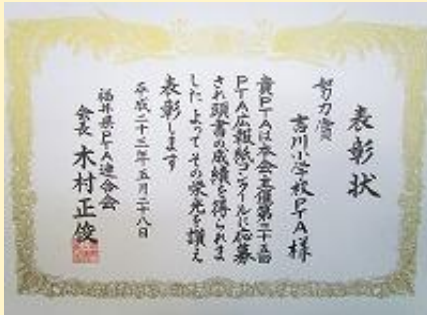 表彰状
努力賞
吉川小学校PTA様
貴PTAは本会主催第三十五回
PTA広報紙コンクールに応募
され頭書の成績を得られま
した よってその栄光を讃え
表彰します
平成二十三年五月二八日
福井県PTA連合会
会長 木村正俊